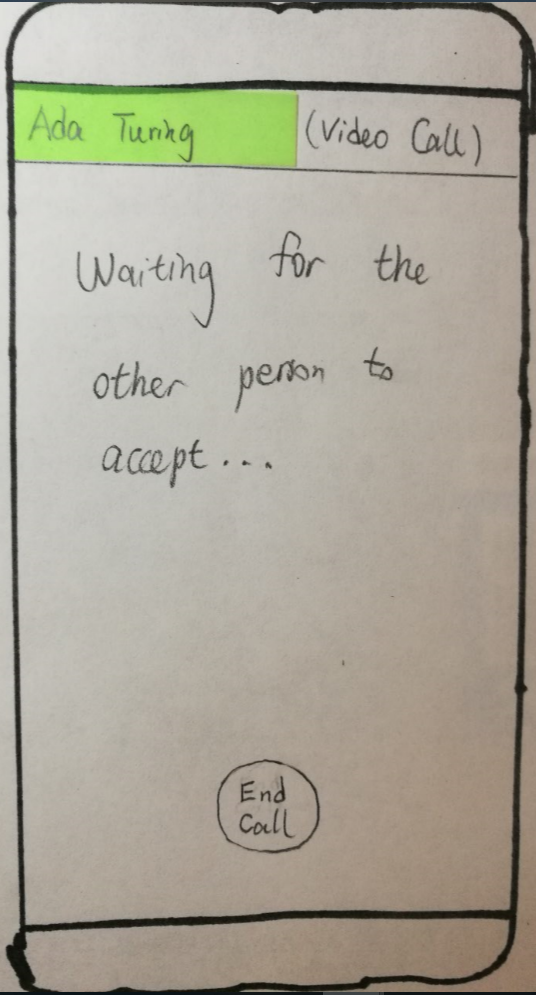 Ada Turing (Video Call)
Waiting for the
other person to
accept...
End
Call